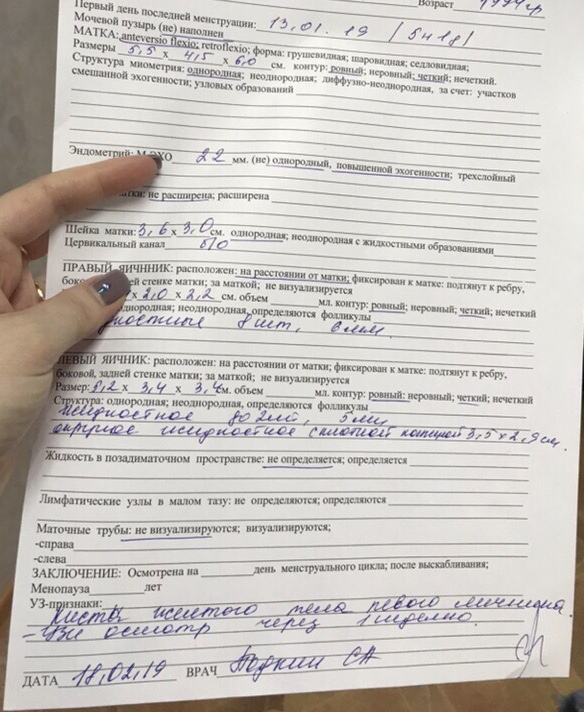 Возраст 1994г
Первый день последней менструации: 13.01.19
Мочевой пузырь (не) наполнен
МАТКА: anteversio flexio; retroflexio; форма: грушевидная; шаровидная; седловидная;
Размеры 5,5 х 4,5 х 6,0 см. контур: ровный; неровный; четкий; нечеткий.
Структура миометрия: однородная; неоднородная; диффузно-неоднородная, за счет: участков
смешанной эхогенности; узловых образований
Эндометрий: М-ЭХО 22 мм. (не) однородный, повышенной эхогенности; трехслойный
не расширена; расширена
Шейка матки: 3,6 х 3,0 см. однородная; неоднородная с жидкостными образованиями
Цервикальный канал б/о
ПРАВЫЙ ЯИЧННИК: расположен: на расстоянии от матки; фиксирован к матке: подтянут к ребру,
стенке матки; за маткой; не визуализируется
х 2,0 х 2,2 см. объем мл. контур: ровный; неровный; четкий; нечеткий
однородная; неоднородная, определяются фолликулы
8 шт, 6 мм.
ЛЕВЫЙ ЯИЧНИК: расположен: на расстоянии от матки; фиксирован к матке: подтянут к ребру,
боковой, задней стенке матки; за маткой; не визуализируется
Размер: 5,2 х 3,4 х 3,4 см. объем мл. контур: ровный: неровный; четкий; нечеткий
Структура: однородная; неоднородная, определяются фолликулы
жидкостное до 5 мм
округлое жидкостное с плотной капсулой 3,5 х 2,9 см.
Жидкость в позадиматочном пространстве: не определяется; определяется
Лимфатические узлы в малом тазу: не определяются; определяются
Маточные трубы: не визуализируются; визуализируются;
-справа
-слева
ЗАКЛЮЧЕНИЕ: Осмотрена на день менструального цикла; после выскабливания;
Менопауза лет
УЗ-признаки:
Кисты желтого тела левого яичника.
- Узи осмотр через 1 неделю.
ДАТА 18.02.19 ВРАЧ